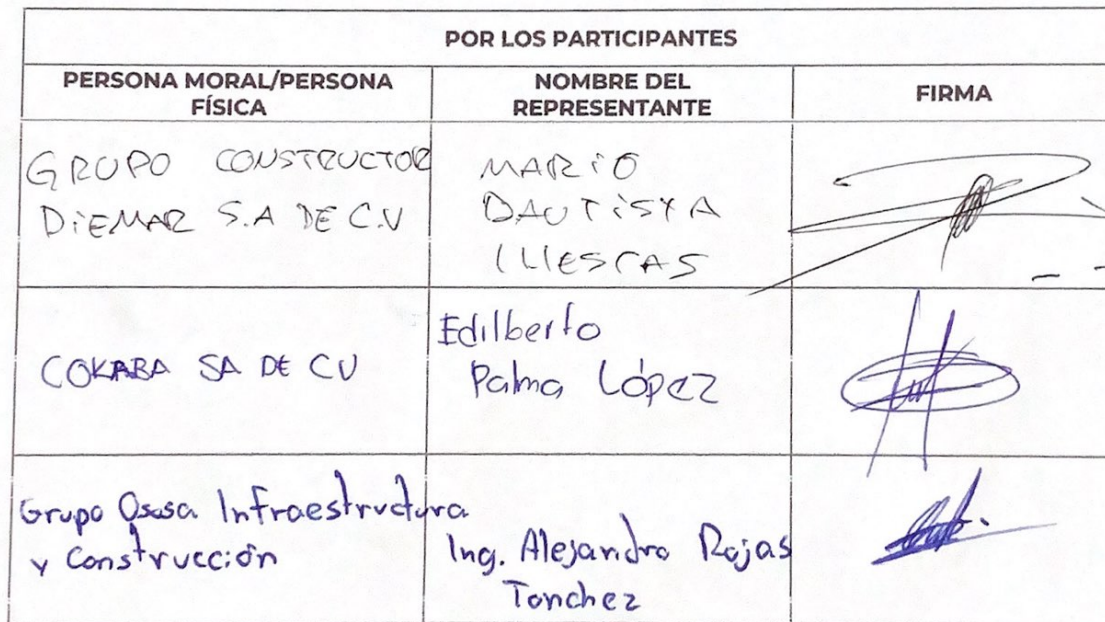 POR LOS PARTICIPANTES
PERSONA MORAL/PERSONA
FÍSICA
NOMBRE DEL
REPRESENTANTE
FIRMA
GRUPO CONSTRUCTOR
DIEMAR S.A DE C.V
MARIO
BAUTISTA
ILLESCAS
COKABA SA DE CV
Edilberto
Palma López
Grupo Osasa Infraestructura
y Construcción
Ing. Alejandro Rojas
Tonchez